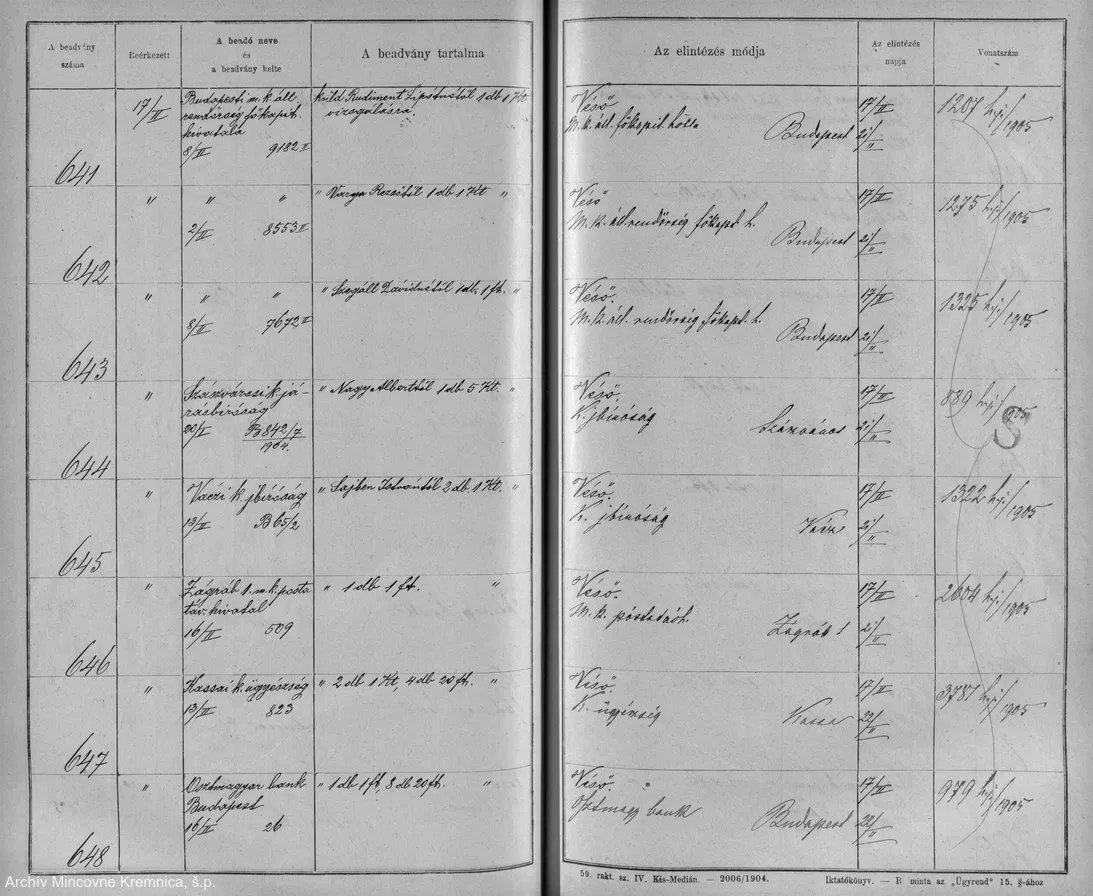 A beadvány száma
Beérkezett
A beadó neve és a beadvány kelte
A beadvány tartalma
Az elintézés módja
Az elintézés napja
Vonatszám
641
17/II
Budapesti m. k. áll.
rendőrség főkapit.
hivatala
8/II 9182 II
küld Rudiment Lipótnétól 1 db 1 Kt
vizsgálásra.
Véső
M. k. áll. főkapit. hotta
Budapest
17/II
21/II
1207 hiji/1905
642
" " "
2/II 8553 II
" Varga Rezsőtől 1 db 1 Kt "
Véső
M. k. áll. rendőrség főkapt h.
Budapest
17/II
21/II
1275 hiji/1905
643
" " "
8/II 7672 II
" Szegáll Dávidnétól 1 db. 1 ft. "
Véső.
M. k. áll. rendőrség főkapt. h.
Budapest
17/II
21/II
1325 hiji/1905
644
"
Szászvárosi k. já-
rásbíróság
20/I B 842/7
1904.
" Nagy Alberttől 1 db 5 Kt. "
Véső.
K. jbíróság
Szászváros
17/II
21/II
889 hiji/905
645
"
Váczi k. jbíróság
13/II B 65/2
" Sajben Istvántól 2 db. 1 Kt. "
Véső.
K. jbíróság
Vácz
17/II
21/II
1322 hiji/1905
646
"
Zágráb 1. m. k. posta
táv. hivatal
16/II 509
" 1 db 1 ft. "
Véső.
M. k. póstatávh.
Zágráb 1
17/II
21/II
2604 hiji/1905
647
"
Kassai k. ügyészség
13/II 823
" 2 db 1 Kt, 4 db 20 f. "
Véső.
K. ügyészség
Kassa
17/II
22/II
3781 hiji/1905
648
"
Osztmagyar bank
Budapest
16/II 26
" 1 db 1 ft, 8 db 20 f. "
Véső. "
Osztmagy bank
Budapest
17/II
22/II
979 hiji/1905
59. rakt. sz. IV. Kis-Medián. — 2006/1904.
Iktatókönyv. — B. minta az „Ügyrend" 15. §-ához
Archív Mincovne Kremnica, š.p.